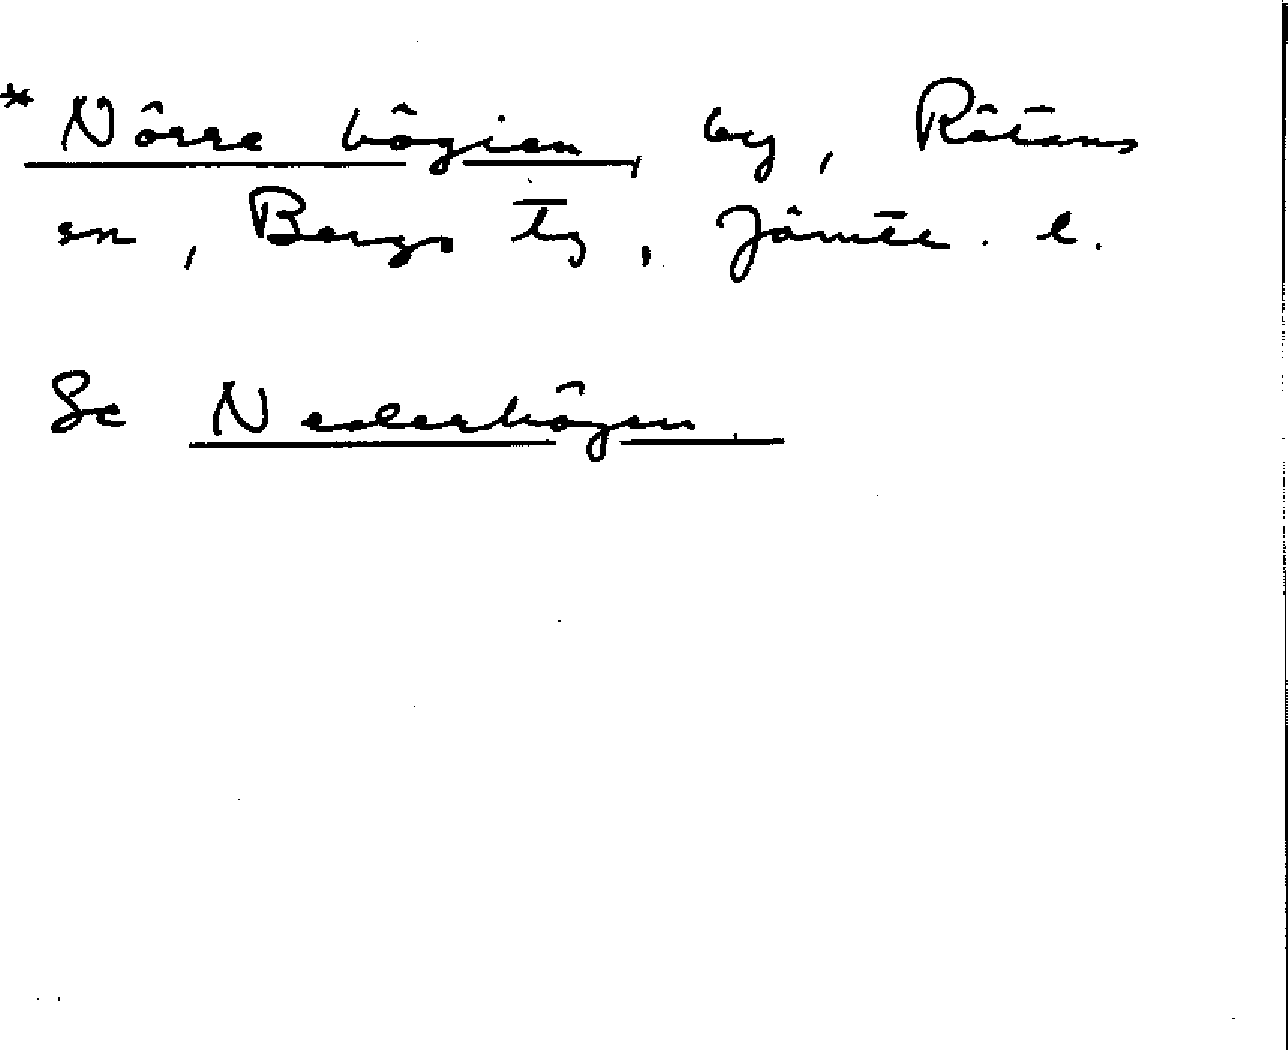 * Nörre högien, by, Rätans
sn, Bergs tg, Jämtl. l.
Se Nederhögen.